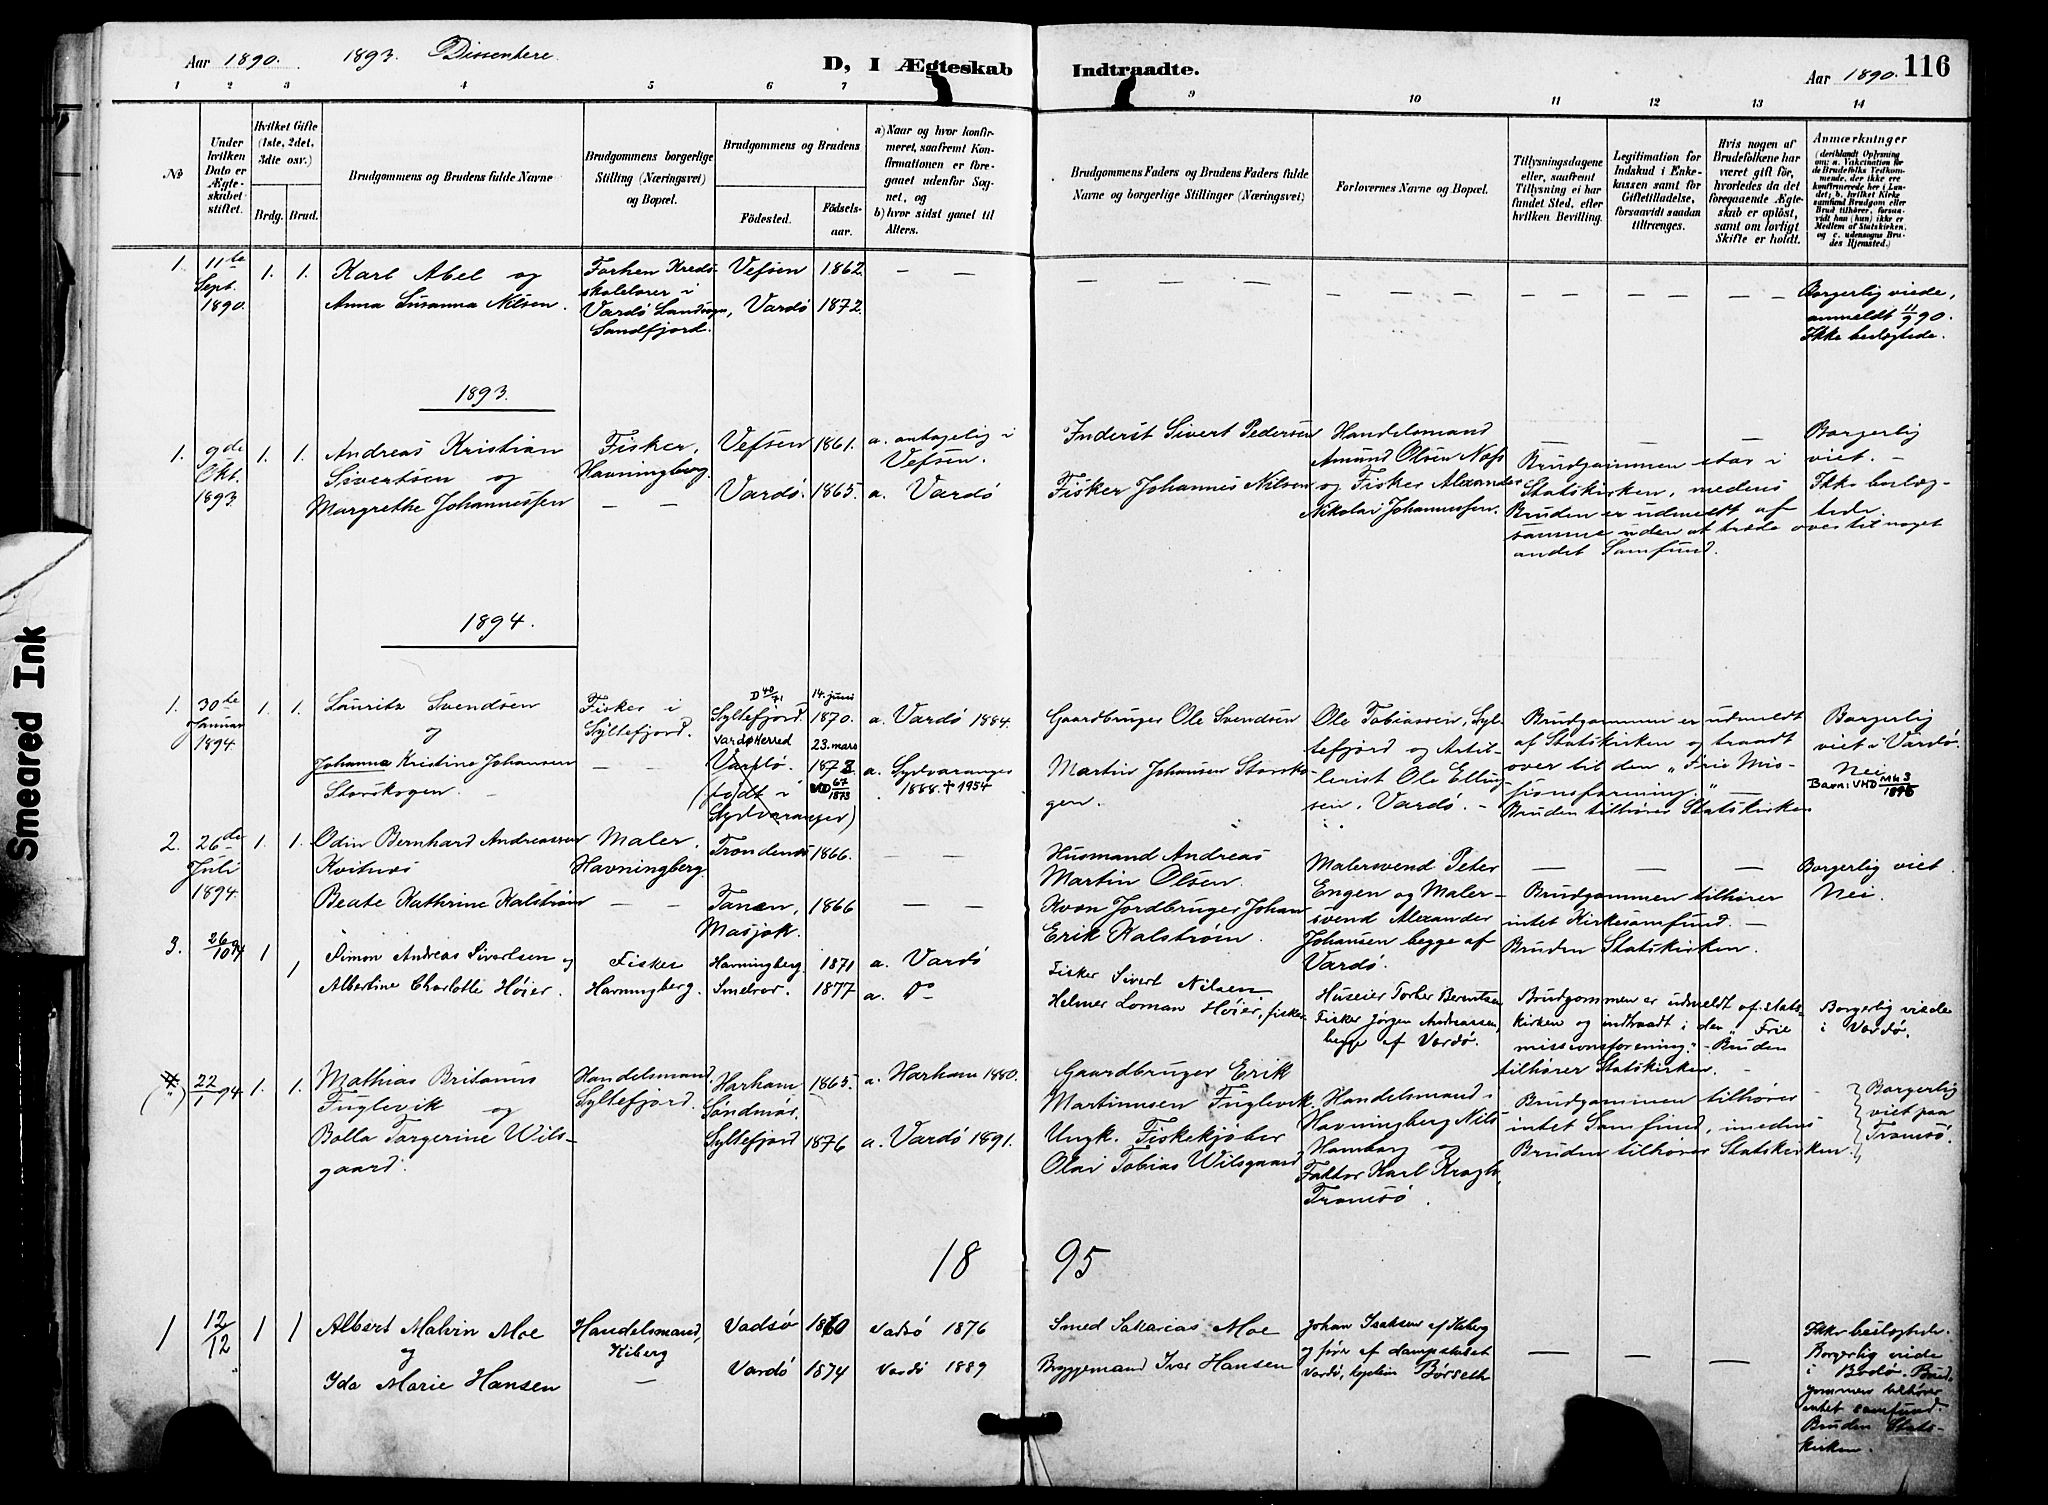 Aar 1890. 1893. Dissentere
D, I Ægteskab Indtraadte.
Aar 1890. 116
1 2 3 4 5 6 7 9 10 11 12 13 14
No
Under
hvilken
Dato er
Ægte-
skabet
stiftet.
Hvilket Gifte
(1ste, 2det,
3die osv.)
Brdg. Brud.
Brudgommens og Brudens fulde Navne
Brudgommens borgerlige
Stilling (Næringsvei)
og Bopæl.
Brudgommens og Brudens
Fødested.
Fødsels-
aar.
a) Naar og hvor konfir-
meret, saafremt Kon-
firmationen er fore-
gaaet udenfor Sog-
net, og
b) hvor sidst gaaet til
Alters.
Brudgommens Faders og Brudens Faders fulde
Navne og borgerlige Stillinger (Næringsvei)
Forlovernes Navne og Bopæl.
Tillysningsdagene
eller, saafremt
Tillysning ei har
fundet Sted, efter
hvilken Bevilling.
Legitimation for
Indskud i Enke-
kassen samt for
Giftetilladelse,
forsaavidt saadan
tiltrænges.
Hvis nogen af
Brudefolkene har
været gift før,
hvorledes da det
foregaaende Ægte-
skab er opløst,
samt om lovligt
Skifte er holdt.
Anmærkninger
(deriblandt Oplysning
om: a. Vakcination for
de Brudefolks Vedkom-
mende, der ikke ere
konfirmerede her i Lan-
det; b. hvilket Kirke-
samfund Brudgom eller
Brud tilhører, forsaa-
vidt han (hun) ikke er
Medlem af Statskirken,
og c. udensogns Bru-
des Hjemsted.)
1. 11te
Sept.
1890.
1. 1.
Karl Abel og
Anna Susanna Nilsen.
Forhen Kreds-
skolelærer i
Vardø Landsogn,
Sandfjord.
Vefsen 1862.
Vardø 1872.
Borgerlig viede,
anmeldt 11/9 90.
Ikke beslægtede.
1893.
1. 9de
Okt.
1893.
1. 1.
Andreas Kristian
Sivertsen og
Margrethe Johannessen
Fisker,
Havningberg.
Vefsen 1861.
Vardø. 1865.
a. antagelig i
Vefsen.
a. Vardø
Inderst Sivert Pedersen
Fisker Johannes Nilsen
Handelsmand
Amund Olsen Næss
og Fisker Alexander
Nikolai Johannessen.
Brudgommen star i
Statskirken, medens
Bruden er udmeldt af
samme uden at træde over til noget
andet Samfund.
Borgerlig
viet. -
Ikke beslæg-
tede.
1894.
1. 30te
Januar
1894.
1. 1.
Lauritz Svendsen
og
Johanna Kristine Johansen
Storskogen.
Fisker i
Syltefjord.
D 40/71
Syltefjord.
Vardø Herred
Vardø.
(født i
Sydvaranger)
14. juni
1870.
23. mars
1872
VD 67/1873
a. Vardø 1884.
a. Sydvaranger
1888. + 1954
Gaardbruger Ole Svendsen
Martin Johansen Storsko-
gen.
Ole Tobiassen, Syl-
tefjord og Artil-
lerist Ole Elling-
sen, Vardø. -
Brudgommen er udmeldt
af Statskirken og traadt
over til den "Frie Mis-
sionsforening."
Bruden tilhører Statskirken
Borgerlig
viet i Vardø.
Nei
Barn: VHD Mk 3/1895
2. 26de
Juli
1894.
1. 1.
Odin Bernhard Andreassen
Kvitnes
Beate Kathrine Kalstrøm
Maler.
Havningberg.
Trondenes 1866.
Tanen, 1866
Masjok.
Husmand Andreas
Martin Olsen.
Kvæn Jordbruger Johan
Erik Kalstrøm.
Malersvend Peter
Engen og Maler-
svend Alexander
Johansen begge af
Vardø.
Brudgommen tilhører
intet Kirkesamfund. -
Bruden Statskirken.
Borgerlig viet.
Nei.
3. 26/10 94
1 1
Simon Andreas Sivertsen og
Albertine Charlotte Høier.
Fisker
Havningberg.
Havningberg. 1871
Smelror. 1877
a. Vardø
a. Do
Fisker Sivert Nilsen.
Helmer Loman Høier, fisker
Huseier Torber Berntsen
Fisker Jørgen Andreassen,
begge af Vardø.
Brudgommen er udmeldt af stats-
kirken og indtraadt i den "Frie
missionsforening." - Bruden
tilhører Statskirken. -
Borgerlig viede
i Vardø.
22/1 94
1. 1.
Mathias Britanus
Fuglevik og
Bolla Torgerine Wils-
gaard.
Handelsmand.
Syltefjord.
Harham 1865.
Søndmør.
Syltefjord 1876
a. Harham 1880.
a. Vardø 1891.
Gaardbruger Erik
Martinusen Fuglevik.
Ungk. Fiskekjøber
Olai Tobias Wilsgaard
Handelsmand i
Havningberg Nils
Hamborg og
Faktor Karl Kragh,
Tromsø.
Brudgommen tilhører
intet Samfund, medens
Bruden tilhører Statskirken.
Borgerlig
viet paa
Tromsø.
18 95
1 12/12
1 1
Albert Malvin Moe
og
Ida Marie Hansen
Handelsmand,
Kiberg
Vadsø 1860
Vardø 1874
Vadsø 1876
Vardø 1889
Smed Sakarias Moe
Byggemand Iver Hansen
Johan Isaksen af Kiberg
og fører af dampskibet
Vardø, kaptein Børseth
Ikke beslægtede.
Borgerlig viede
i Bodø. Brud-
gommen tilhører
intet samfund.
Bruden Stats-
kirken.
Smeared Ink